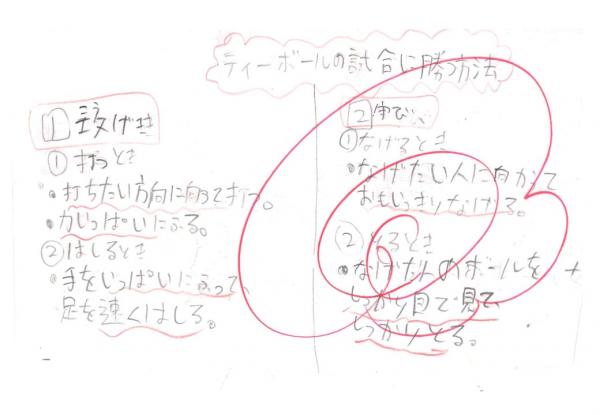 ティーボールの試合に勝つ方法
1 攻げき
① 打つとき
・打ちたい方向に向って打つ。
・力いっぱいにふる。
② はしるとき
・手をいっぱいにふって、
足を速くはしる。
2 守び
① なげるとき
・なげたい人に向かって
おもいっきりなげる。
② とるとき
・なげた人のボールを
しっかり目で見て、
しっかりとる。